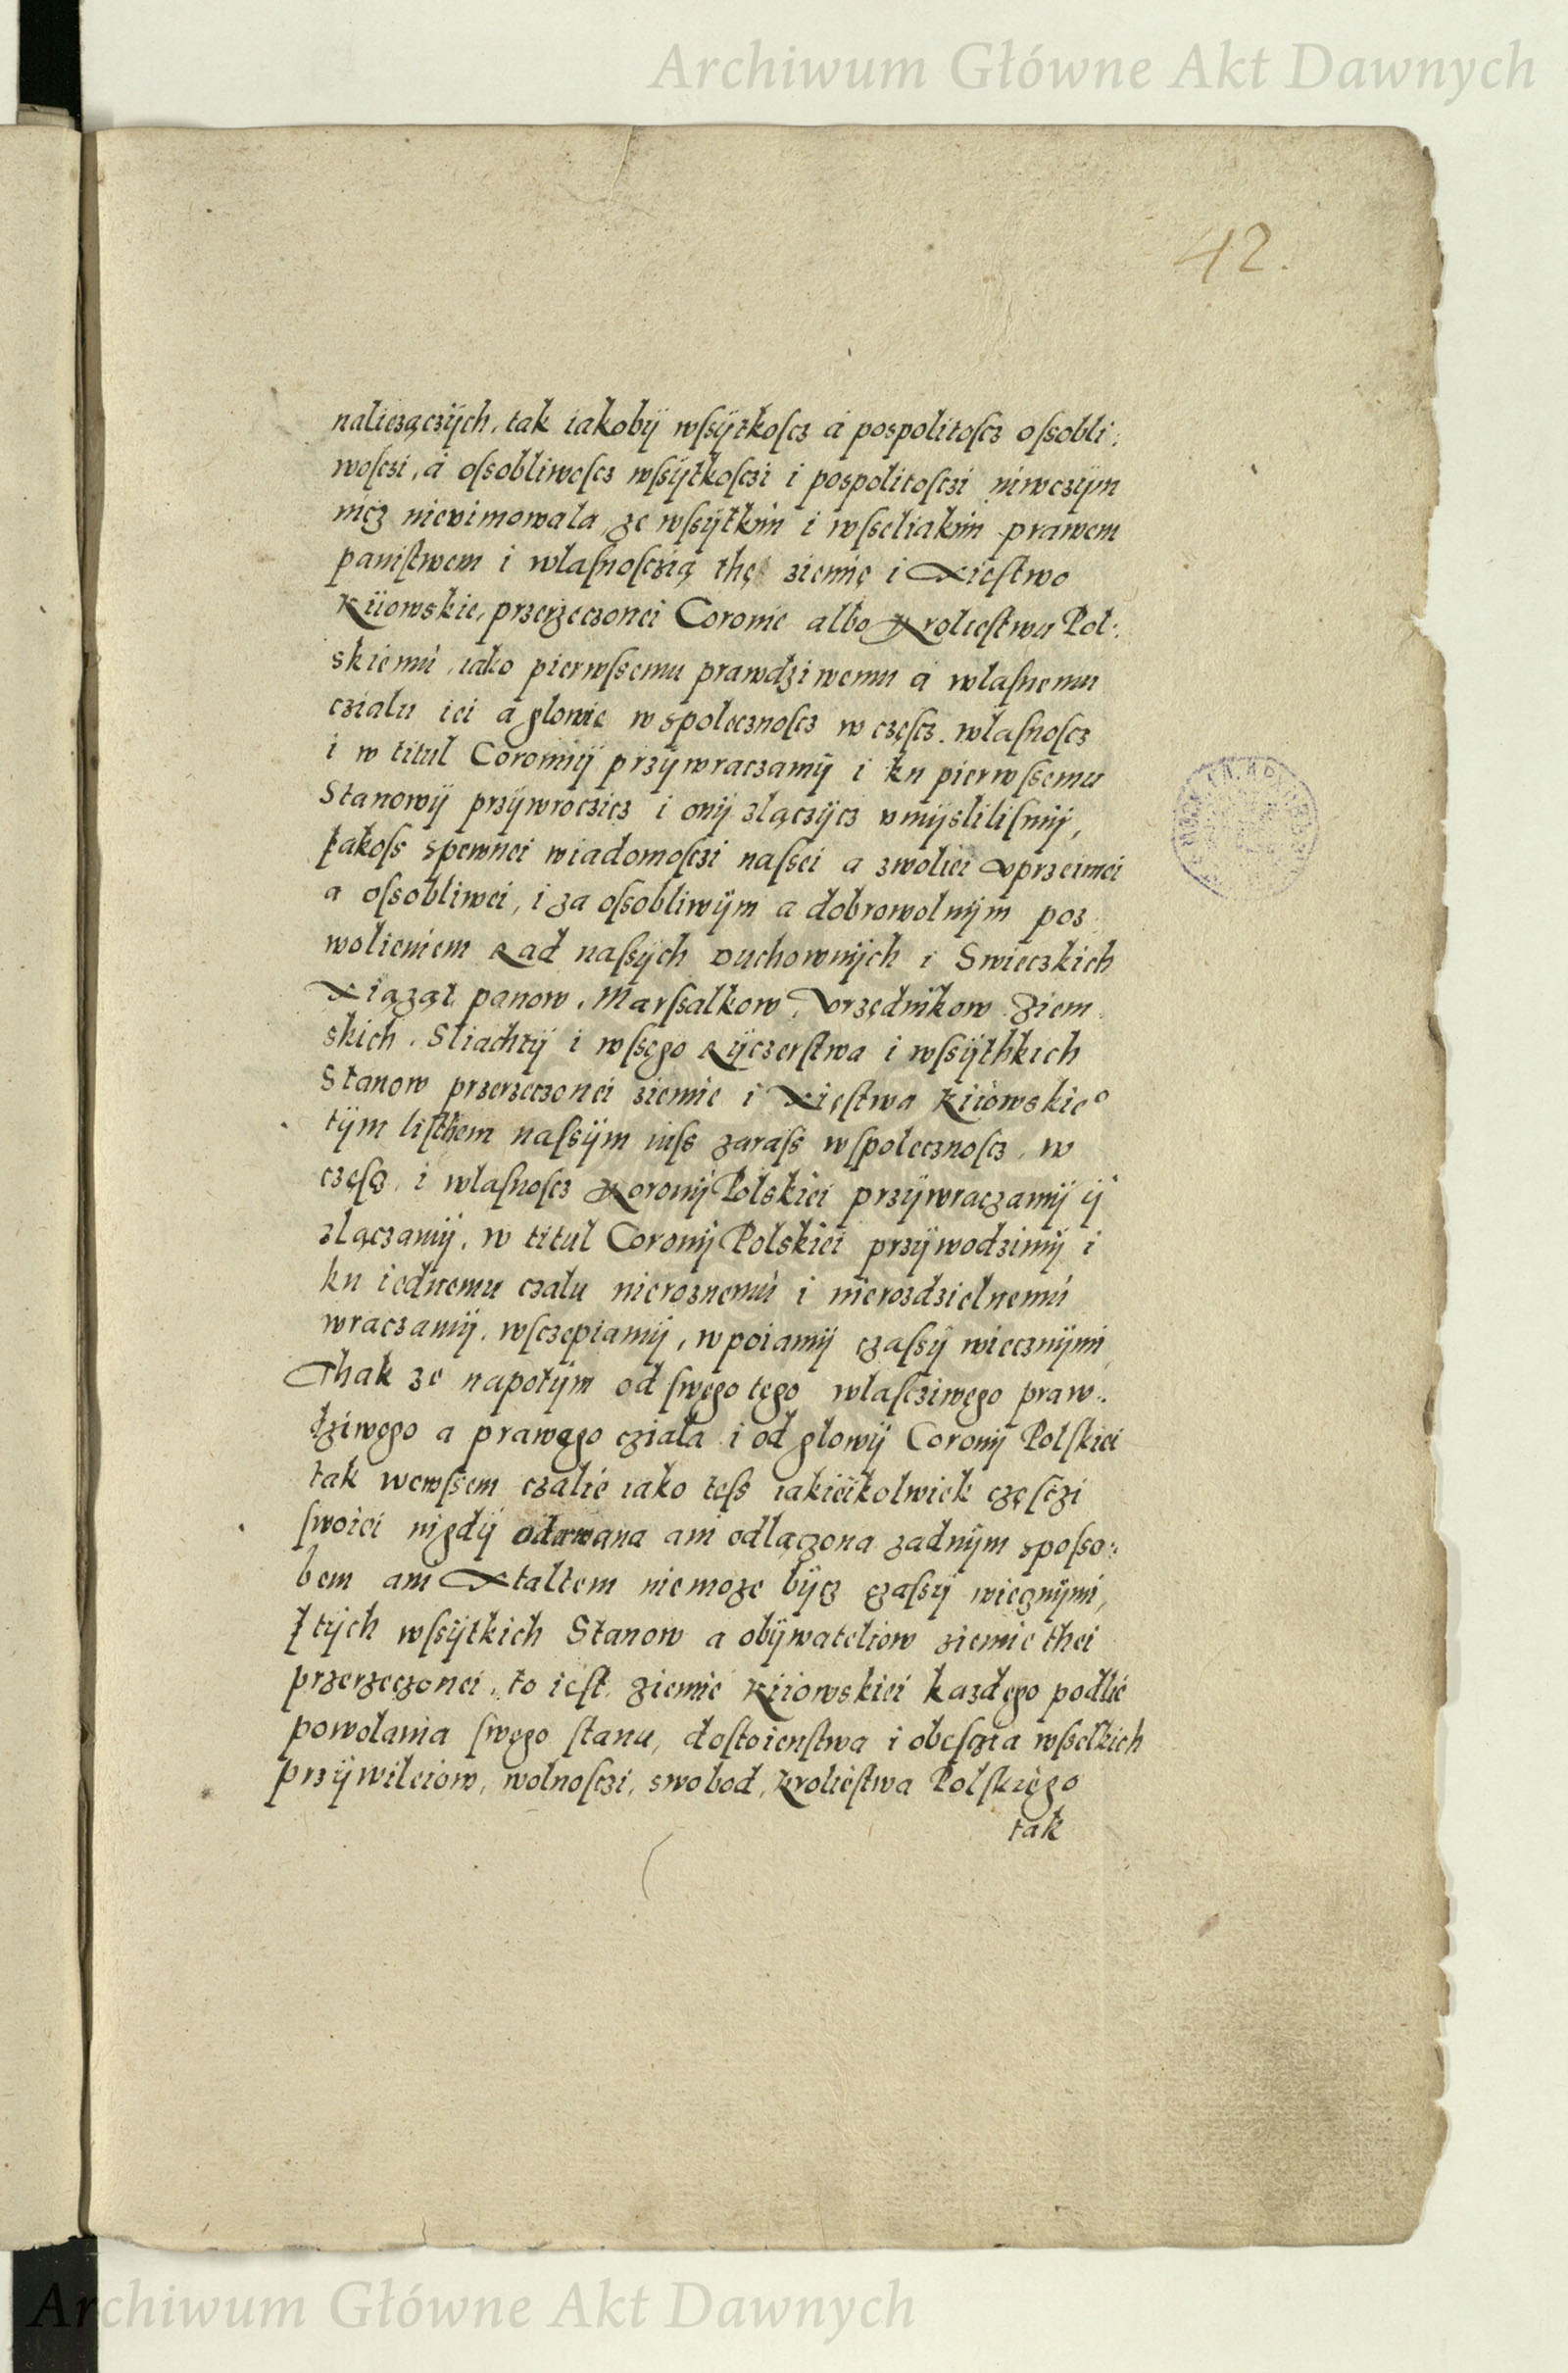 Archiwum Główne Akt Dawnych
42.
naliezączÿch, tak iakobÿ wſsÿtkoſcz á pospolitoſcz oſsobli:
woſczi, á oſsobliwoſcz wſsÿtkoſczi i pospolitoſczi niwczÿm
nicz nievimowala, ze wſsÿtkim i wſseliakim prawem
paniſtwem i wlaſnoſczią thę ziemię i Xieſtwo
Kiiowskie, przerzeczonei Coronie albo Krolieſtwu Pol:
skiemu, iako pierwſsemu prawdziwemu á wlaſnemu
czialu iei á glowie w spolecznoſcz w częſcz. wlaſnoſcz
i w titul Coronnÿ przÿwraczamÿ i ku pierwſsemu
Stanowÿ przÿwroczicz i onÿ zlączÿcz vmÿsliliſmÿ,
Jakoſs spewnei wiadomoſczi naſsei a zwoliei vprzeimei
a oſsobliwei, i za oſsobliwÿm a dobrowolnÿm poz
wolieniem Rad naſsÿch Duchownÿch i Swieczkich
Xiążąt panow, Marſsalkow, Vrzędnikow Ziem
skich, Sliachtÿ i wſsego Rÿczerſtwa i wſsÿthkich
Stanow przerzeczonei ziemie i Xięſtwa Kiiowskie°
tÿm liſthem naſsÿm iuſs zaraſs wſpolecznoſcz, w
częſcz, i wlaſnoſcz Koronÿ Polskiei przÿwraczamÿ ÿ
zlączamÿ, w titul Coronÿ Polskiei przÿwodzimÿ i
ku iednemu czalu nieroznemu i nierozdzielnemu
wraczamÿ, wſczepiamÿ, wpoiamÿ czaſsÿ wiecznÿmi,
Thak ze napotÿm od ſwego tego wlaſcziwego praw:
dziwego a prawego cziala i od glowÿ Coronÿ Polſkiei
tak wewſsem czalie iako teſs iakieikolwiek częſczi
ſwoiei nigdÿ odarwana ani odlączona zadnÿm spoſso:
bem ani Xtaltem niemoze bÿcz czaſsÿ wiecznÿmi,
Ztÿch wſsÿtkich Stanow a obÿwateliow ziemie thei
przerzeczonei, to ieſt ziemie Kiiowskiei kazdego podlie
powolania ſwego ſtanu, doſtoienſtwa i obeſzcia wſselkich
przÿwileiow, wolnoſczi, swobod, Krolieſtwa Polſkiego
tak
Archiwum Główne Akt Dawnych